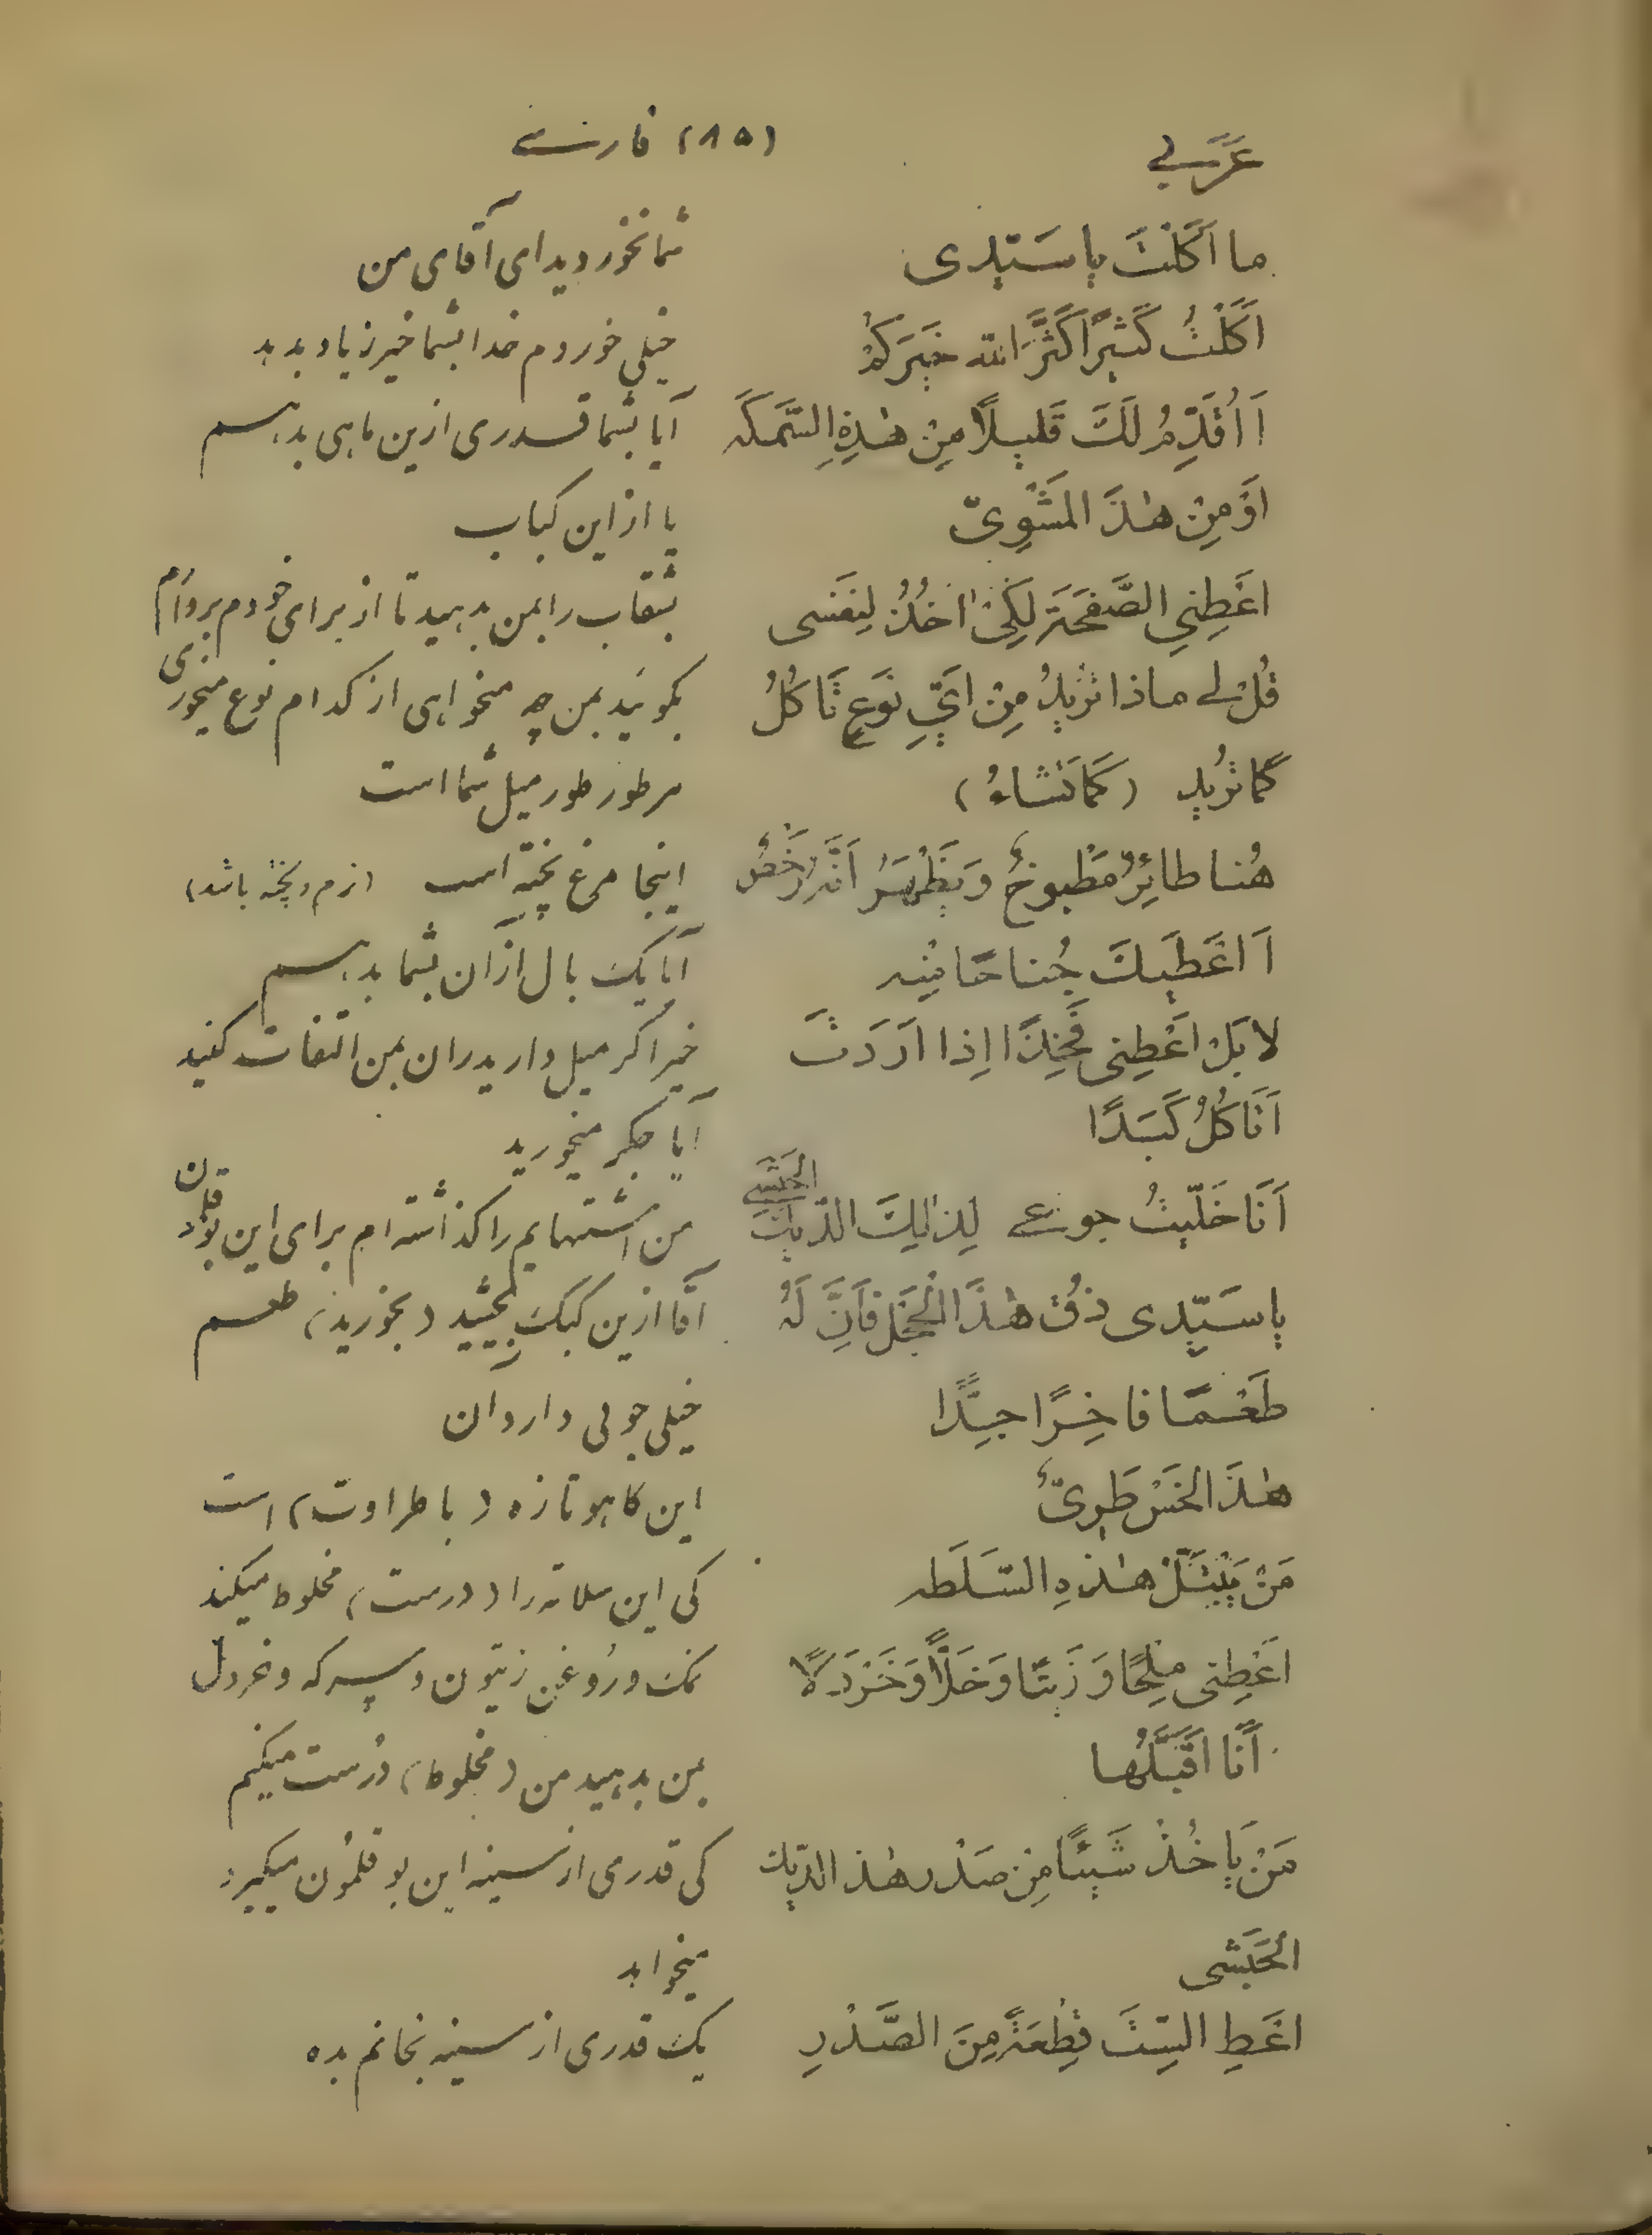 عَرَبي (۸۵) فارسے
ما اَکَلْتَ یا سَیّدی شما نخوردید ای آقای من
اَکَلْتُ کَثیرًا کَثَّرَ الله خَیرَکُمْ خیلی خوردم خدا بشما خیر زیاد بدهد
اَ اُقَدِّمُ لَکَ قَلیلًا مِنْ هٰذِهِ السَّمَکَه آیا بشما قدری ازین ماهی بدهم
اَوْ مِنْ هٰذَ المَشْوِیّ یا از این کباب
اعْطِنی الصَّفحَةَ لِکَیْ اٰخُذُ لِنَفسی بشقاب را بمن بدهید تا از برای خودم بردارم
قُلْ لے ماذا تُریدُ مِنْ اَیِّ نَوعٍ تَاکُلُ بگوئید بمن چه میخواهی از کدام نوع میخوری
کَما تُرید (کَما تَشاءُ) هر طور طور میل شما است
هُنا طائِرٌ مَطْبوخٌ وَ یَظْهَرُ اَنَّهُ رَخْصٌ اینجا مرغ پخته است (نرم و پخته باشد)
اَ اعْطیکَ جُناحًا مِنْه آیا یک بال از آن بشما بدهم
لا بَلْ اعْطِنی فَخِذًا اِذا اَرَدَتَ خیر اگر میل دارید ران بمن التفات کنید
اَتَاکُلُ کَبَدًا آیا جگر میخورید
اَنَا خَلّیتُ جوعے لِذٰلِکَ الدّیک الحَبَشی من اشتهایم را گذاشته ام برای این بوقلمون
یا سَیّدی ذُق هٰذَا الْحَجَل فَاِنَّ لَهُ آقا ازین کبک بچشید (بخورید) طعم
طَعْمًا فاخِرًا جیِّدًا خیلی خوبی دارد آن
هٰذَ الخَسّ طَریٌّ این کاهو تازه (با طراوت) است
مَنْ یُتَبِّلْ هٰذِهِ السَّلَطه کی این سلاته را (درست) مخلوط میکند
اعْطِنی مِلحًا وَ زَیتًا وَ خَلًّا وَ خَرْدَلًا نمک و روغن زیتون و سرکه و خردل
اَنَا اُتَبِّلُها بمن بدهید من (مخلوط) درست میکنم
مَنْ یَاخُذُ شَیئًا مِنْ صَدْر هٰذ الدّیک کی قدری از سینه این بوقلمون میگیرد
الحَبَشی میخواهد
اعَطِ السِتَّ قِطْعَةً مِنَ الصَّدْرِ یک قدری از سینه بخانم بده